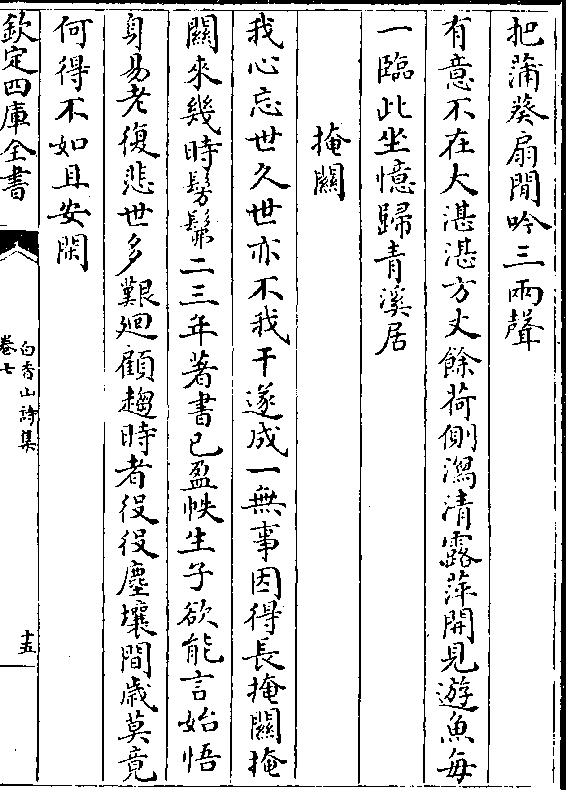 把蒲葵扇閒吟三兩聲
有意不在大湛湛方丈餘荷側瀉清露萍開見遊魚每
一臨此坐憶歸青溪居
掩關
我心忘世久世亦不我干遂成一無事因得長掩關掩
關來幾時髣髴二三年著書已盈帙生子欲能言始悟
身易老復悲世多艱廻顧趨時者役役塵壤間歲莫竟
何得不如且安閑
欽定四庫全書
白香山詩集
卷七
十五